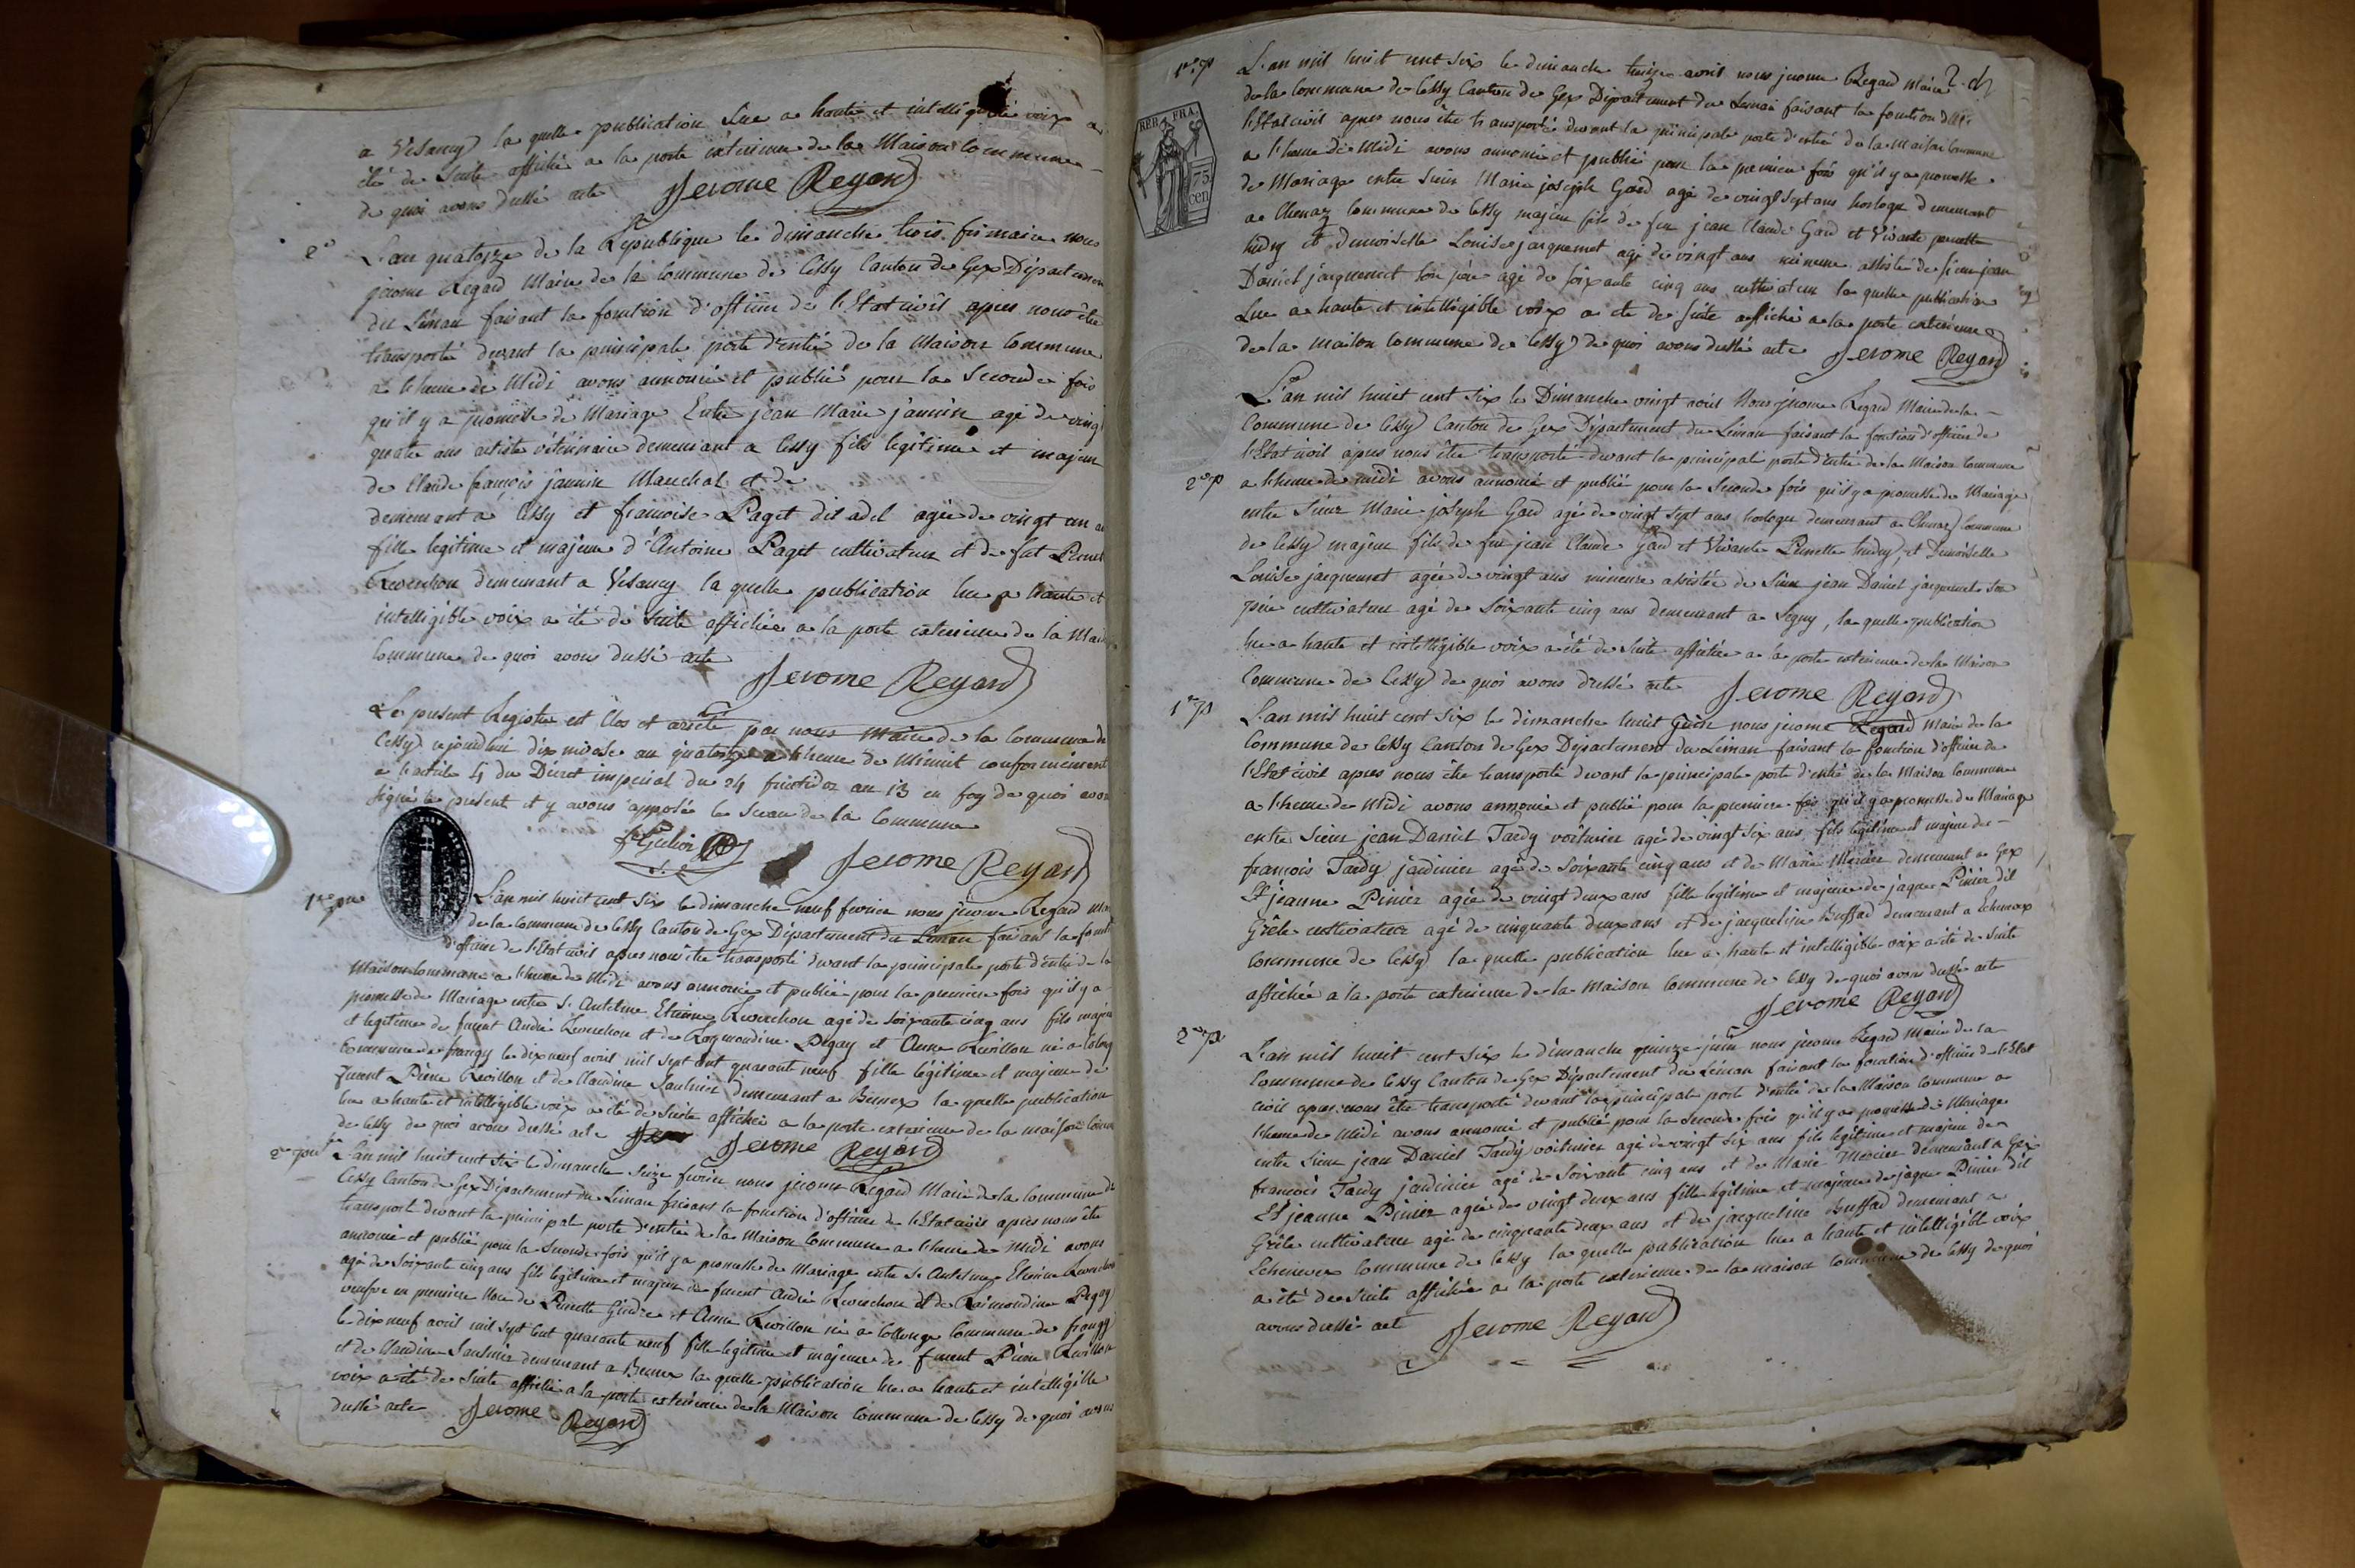 a Vesancy la quelle publication lue a haute et intelligible voix a
été de suite affiché a la porte extérieure de la Maison commune
de quoi avons dressé acte Jerome Regard
2e L'an quatorze de la République le dimanche trois frimaire nous
jerome Regard Maire de la commune de Cessy Canton de Gex Département
du Léman faisant la fonction d'officier de l'Etat civil apres nous être
transporté devant la principale porte d'entré de la Maison commune
a l'heure de Midi avons annoncé et publié pour la seconde fois
qu'il y a promesse de Mariage Entre jean Marie jannin agé de vingt
quatre ans artiste vétérinaire demeurant a Cessy fils legitime et majeur
de Claude françois jannin Marechal et de
demeurant a Cessy et francoise Paget dit adel agée de vingt un an
fille legitime et majeure d'Antoine Paget cultivateur et de fut
demeurant a Vesancy la quelle publication lue a haute et
intelligible voix a été de suite affichée a la porte exterieure de la
commune de quoi avons dressé acte
Jerome Regard
Le present Registre est Clos et arreté par nous Maire de la commune de
Cessy cejourd'hui dix nivose an quatorze a l'heure de Minuit conformement
a l'article 4 du Décret imperial du 24 fructidor an 13 en foy de quoi avons
signé le présent et y avons apposée le Sceau de la Commune
Jerome Regard
1re pu L'an mil huit cent six le dimanche neuf fevrier nous jerome Regard
de la commune de Cessy Canton de Gex Département du Leman faisant la
d'officier de l'Etat civil apres nous être transporté devant la principale porte d'entré de la
Maison commune a l'heure de Midi avons annoncé et publié pour la premiere fois qu'il y a
promesse de Mariage entre Sr Antelme Etienne Revenchon agé de soixante cinq ans fils majeur
et legitime de furent André Revenchon et de Raymondine Pegay et Anne Revillon né a
commune de frangy le dix neuf avril mil sept cent quarant neuf fille légitime et majeure de
furent Pierre Revillon et de Claudine Saulnier demeurant a la quelle publication
lue a haute et intelligible voix a été de suite affichée a la porte exterieure de la maison
de Cessy de quoi avons dressé acte Jerome Regard
2e pu L'an mil huit cent six le dimanche seize fevrier nous jerome Regard Maire de la commune de
Cessy Canton de Gex Département du Léman faisant la fonction d'officier de l'Etat civil apres nous être
transporté devant la principale porte d'entrée de la Maison commune a l'heure de Midi avons
annoncé et publié pour la seconde fois qu'il y a promesse de Mariage entre Sr Antelme Etienne
agé de soixante cinq ans fils legitime et majeur de furent André Revenchon et de Raimondine Pegay
et Anne Revillon né a Collonge commune de frangy
le dix neuf avril mil sept cent quarante neuf fille legitime et majeure de furent Pierre Revillon
et de Claudine Saulnier demeurant a la quelle publication lue a haute et intelligible
voix a été de suite affichée a la porte extérieure de la Maison commune de Cessy de quoi avons
dressé acte Jerome Regard
1re p L'an mil huit cent six le dimanche treize avril nous jerome Regard Maire
de la commune de Cessy Canton de Gex Département du Leman faisant la fonction
l'Etat civil apres nous être transporté devant la principale porte d'entré de la Maison commune
REP. FRA.
75
cen
a l'heure de Midi avons annoncé et publié pour la premiere fois qu'il y a promesse
de Mariage entre Sieur Marie joseph God agé de vingt sept ans horloger demeurant
a Chenaz commune de Cessy majeur fils de feu jean Claude God et Vivante
et demoiselle Louise jacquemet agé de vingt ans mineure assisté de Sieur jean
Daniel jacquemet son pere agé de soixante cinq ans cultivateur la quelle publication
Lue a haute et intelligible voix a été de suite affiché a la porte exterieure
de la maison commune de Cessy de quoi avons dressé acte Jerome Regard
L'an mil huit cent six le Dimanche vingt avril Nous jerome Regard Maire de la
Commune de Cessy Canton de Gex Département du Léman faisant la fonction d'officier de
l'Etat civil apres nous être transporté devant la principale porte d'entré de la Maison commune
2e p a l'heure de midi avons annoncé et publié pour la seconde fois qu'il y a promesse de Mariage
entre Sieur Marie joseph God agé de vingt sept ans horloger demeurant a Chenaz commune
de Cessy majeur fils de feu jean Claude God et Vivante Pernette et Demoiselle
Louise jacquemet agée de vingt ans mineure assistée de Sieur jean Daniel jacquemet son
père cultivateur agé de soixante cinq ans demeurant a Segny, la quelle publication
lue a haute et intelligible voix a été de suite affichée a la porte exterieure de la Maison
Commune de Cessy de quoi avons dressé acte Jerome Regard
1re p L'an mil huit cent six le dimanche huit juin nous jerome Regard Maire de la
Commune de Cessy Canton de Gex Département du Léman faisant la fonction d'officier de
l'Etat civil apres nous être transporté devant la principale porte d'entré de la Maison commune
a l'heure de Midi avons annoncé et publié pour la premiere fois qu'il y a promesse de Mariage
entre Sieur jean Daniel Tardy voiturier agé de vingt six ans fils légitime et majeur de
francois Tardy jardinier agé de soixante cinq ans et de Marie Mercier demeurant a Gex
Et jeanne Pinier agée de vingt deux ans fille legitime et majeure de jaque Pinier dit
Grêle cultivateur agé de cinquante deux ans et de jacqueline Buffad demeurant a Echenevex
commune de Cessy la quelle publication lue a haute et intelligible voix a été de suite
affichée a la porte exterieure de la Maison commune de Cessy de quoi avons dressé acte
Jerome Regard
2e p L'an mil huit cent six le dimanche quinze juin nous jerome Regard Maire de la
Commune de Cessy Canton de Gex Département du Léman faisant la fonction d'officier de l'Etat
civil apres nous être transporté devant la principale porte d'entré de la Maison commune a
l'heure de Midi avons annoncé et publié pour la seconde fois qu'il y a promesse de Mariage
entre Sieur jean Daniel Tardy voiturier agé de vingt six ans fils légitime et majeur de
francois Tardy jardinier agé de soixante cinq ans et de Marie Mercier demeurant a Gex
Et jeanne Pinier agée de vingt deux ans fille legitime et majeure de jaque Pinier dit
Grêle cultivateur agé de cinquante deux ans et de jacqueline Buffad demeurant a
Echenevex commune de Cessy la quelle publication lue a haute et intelligible voix
a été de suite affichée a la porte exterieure de la maison commune de Cessy de quoi
avons dressé acte Jerome Regard